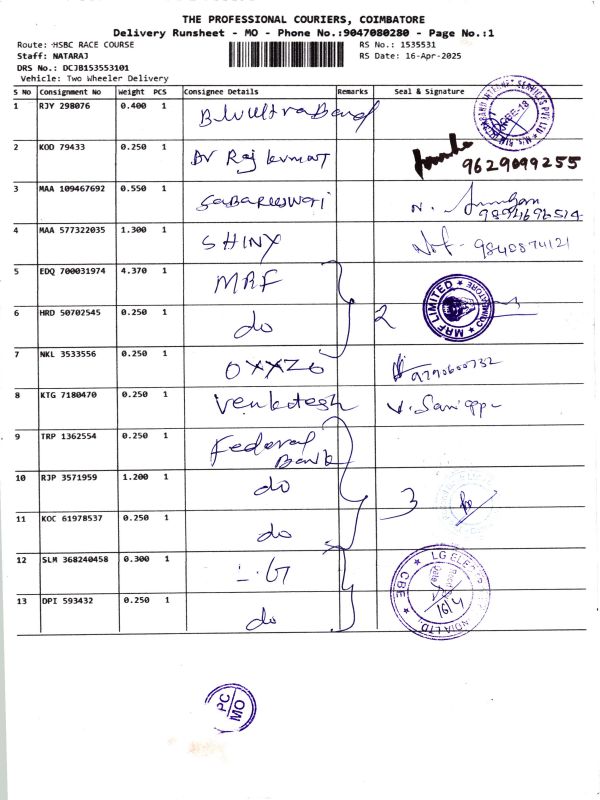 THE PROFESSIONAL COURIERS, COIMBATORE
Delivery Runsheet - MO - Phone No.:9047080280 - Page No.:1
Route: HSBC RACE COURSE
RS No.: 1535531
Staff: NATARAJ
RS Date: 16-Apr-2025
DRS No.: DCJB153553101
Vehicle: Two Wheeler Delivery
S No Consignment No Weight PCS Consignee Details Remarks Seal & Signature
1 RJY 298076 0.400 1
2 KOD 79433 0.250 1 Dr Raj kumar 9629099255
3 MAA 109467692 0.550 1 Sabareeswari N.
4 MAA 577322035 1.300 1 SHINY 9840874121
5 EDQ 700031974 4.370 1 MRF
6 HRD 50702545 0.250 1 do 2 MRF LIMITED COIMBATORE
7 NKL 3533556 0.250 1 OXXZO 9790600732
8 KTG 7180470 0.250 1 Venkatesh V.
9 TRP 1362554 0.250 1 Federal
Bank
10 RJP 3571959 1.200 1 do 3
11 KOC 61978537 0.250 1 do
12 SLM 368240458 0.300 1 LG
13 DPI 593432 0.250 1 do 16/4
PC
MO